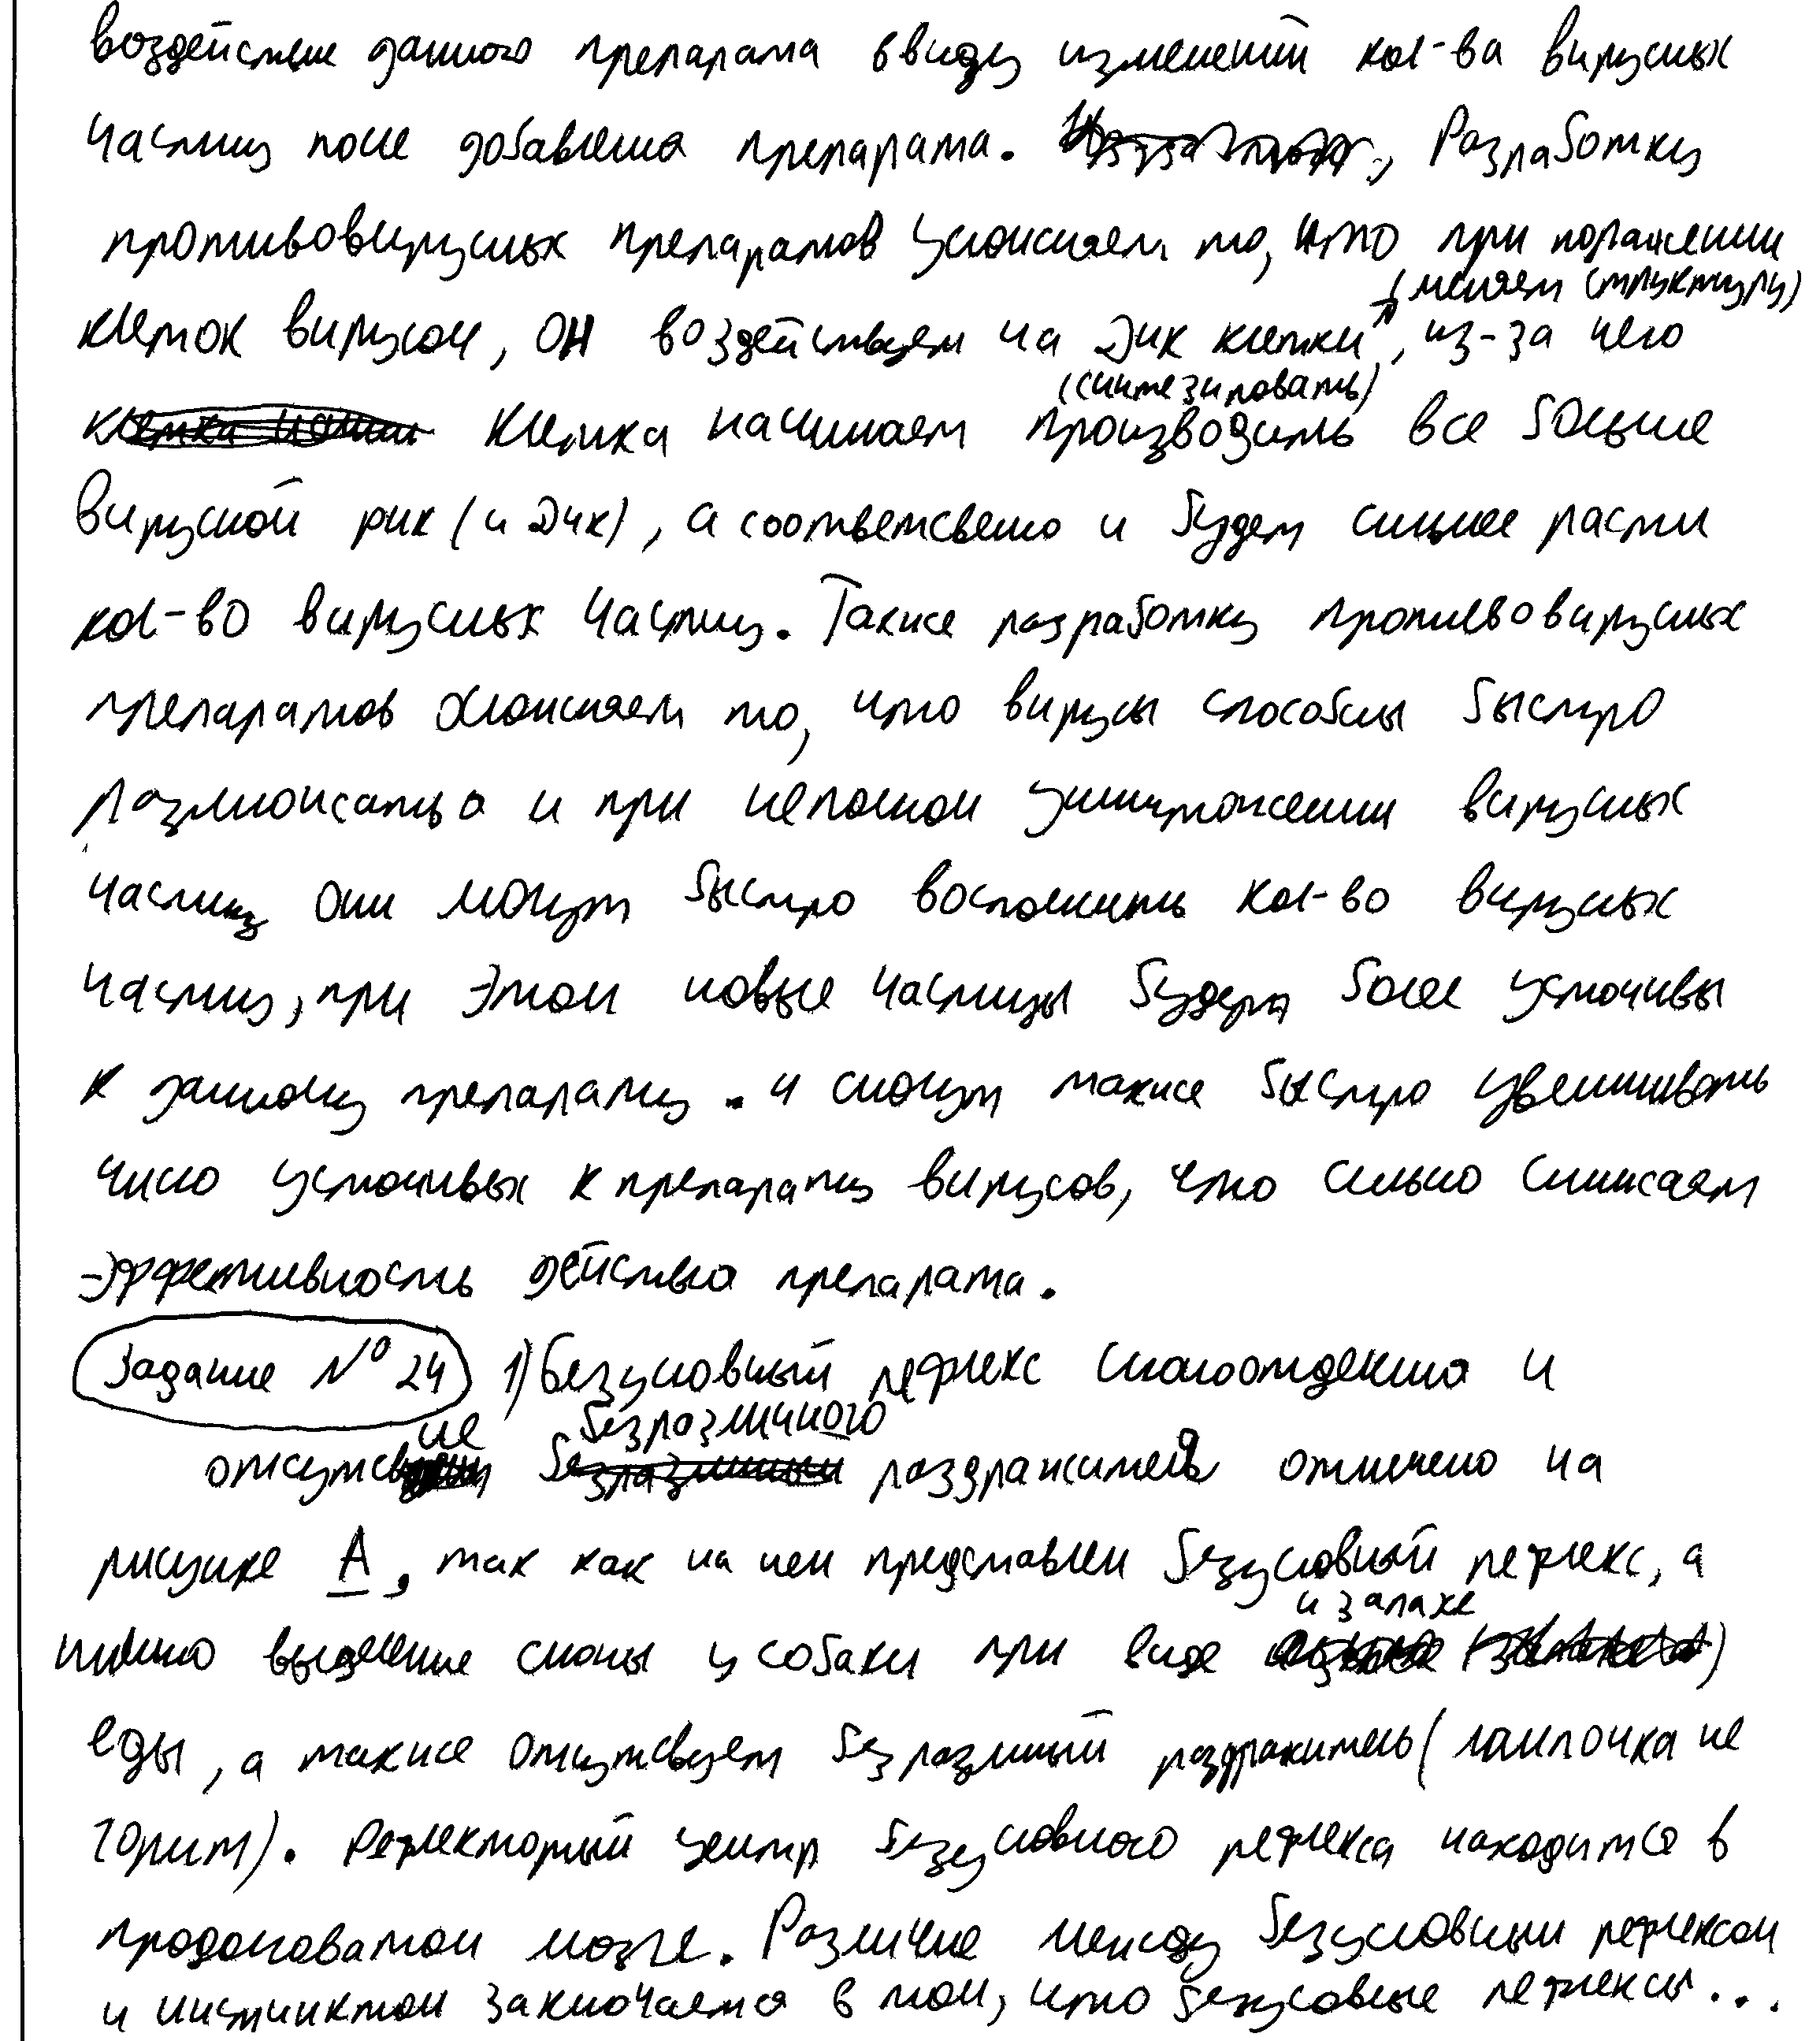 воздействие данного препарата ввиду изменений кол-ва вирусных
частиц после добавления препарата. Разработку
противовирусных препаратов усложняет то, что при поражении
(меняет структуру)
клеток вирусом, он воздействует на ДНК клетки, из-за чего
(синтезировать)
клетка начинает производить все больше
вирусной РНК (и ДНК), а соответсвено и будет сильнее расти
кол-во вирусных частиц. Также разработку противовирусных
препаратов усложняет то, что вирусы способны быстро
размножаться и при неполном уничтожении вирусных
частиц они могут быстро восполнить кол-во вирусных
частиц, при этом новые частицы будут более усточивы
к данному препарату. и смогут также быстро увеличивать
число усточивых к препарату вирусов, что сильно снижает
эффективность действия препарата.
Задание №24 1) Безусловный рефлекс слюноотделения и
не безразличного
отсутсв раздражителя отмечено на
рисунке А, так как на нем представлен безусловный рефлекс, а
и запахе
именно выделение слюны у собаки при виде
еды, а также отсутсвует безразличный раздражитель (лампочка не
горит). Рефлекторный центр безусловного рефлекса находится в
продолговатом мозге. Различие между безусловным рефлексом
и инстинктом заключается в том, что безусловные рефлексы...